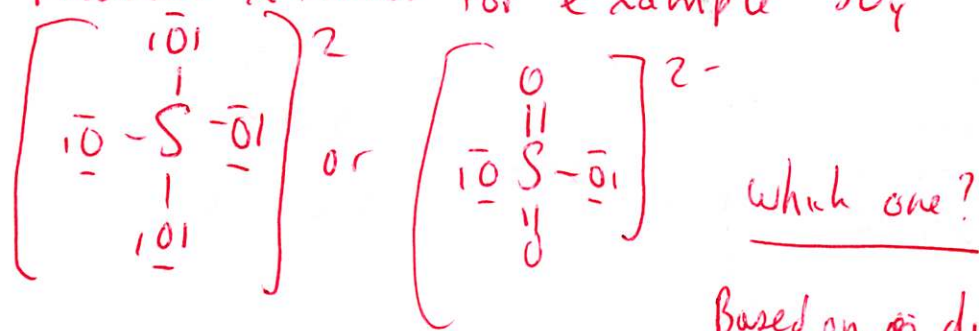 for example SO4
[ |O| |O - S - O| |O| ]2 or [ O || |O S - O| || O ]2-
which one?
Based on